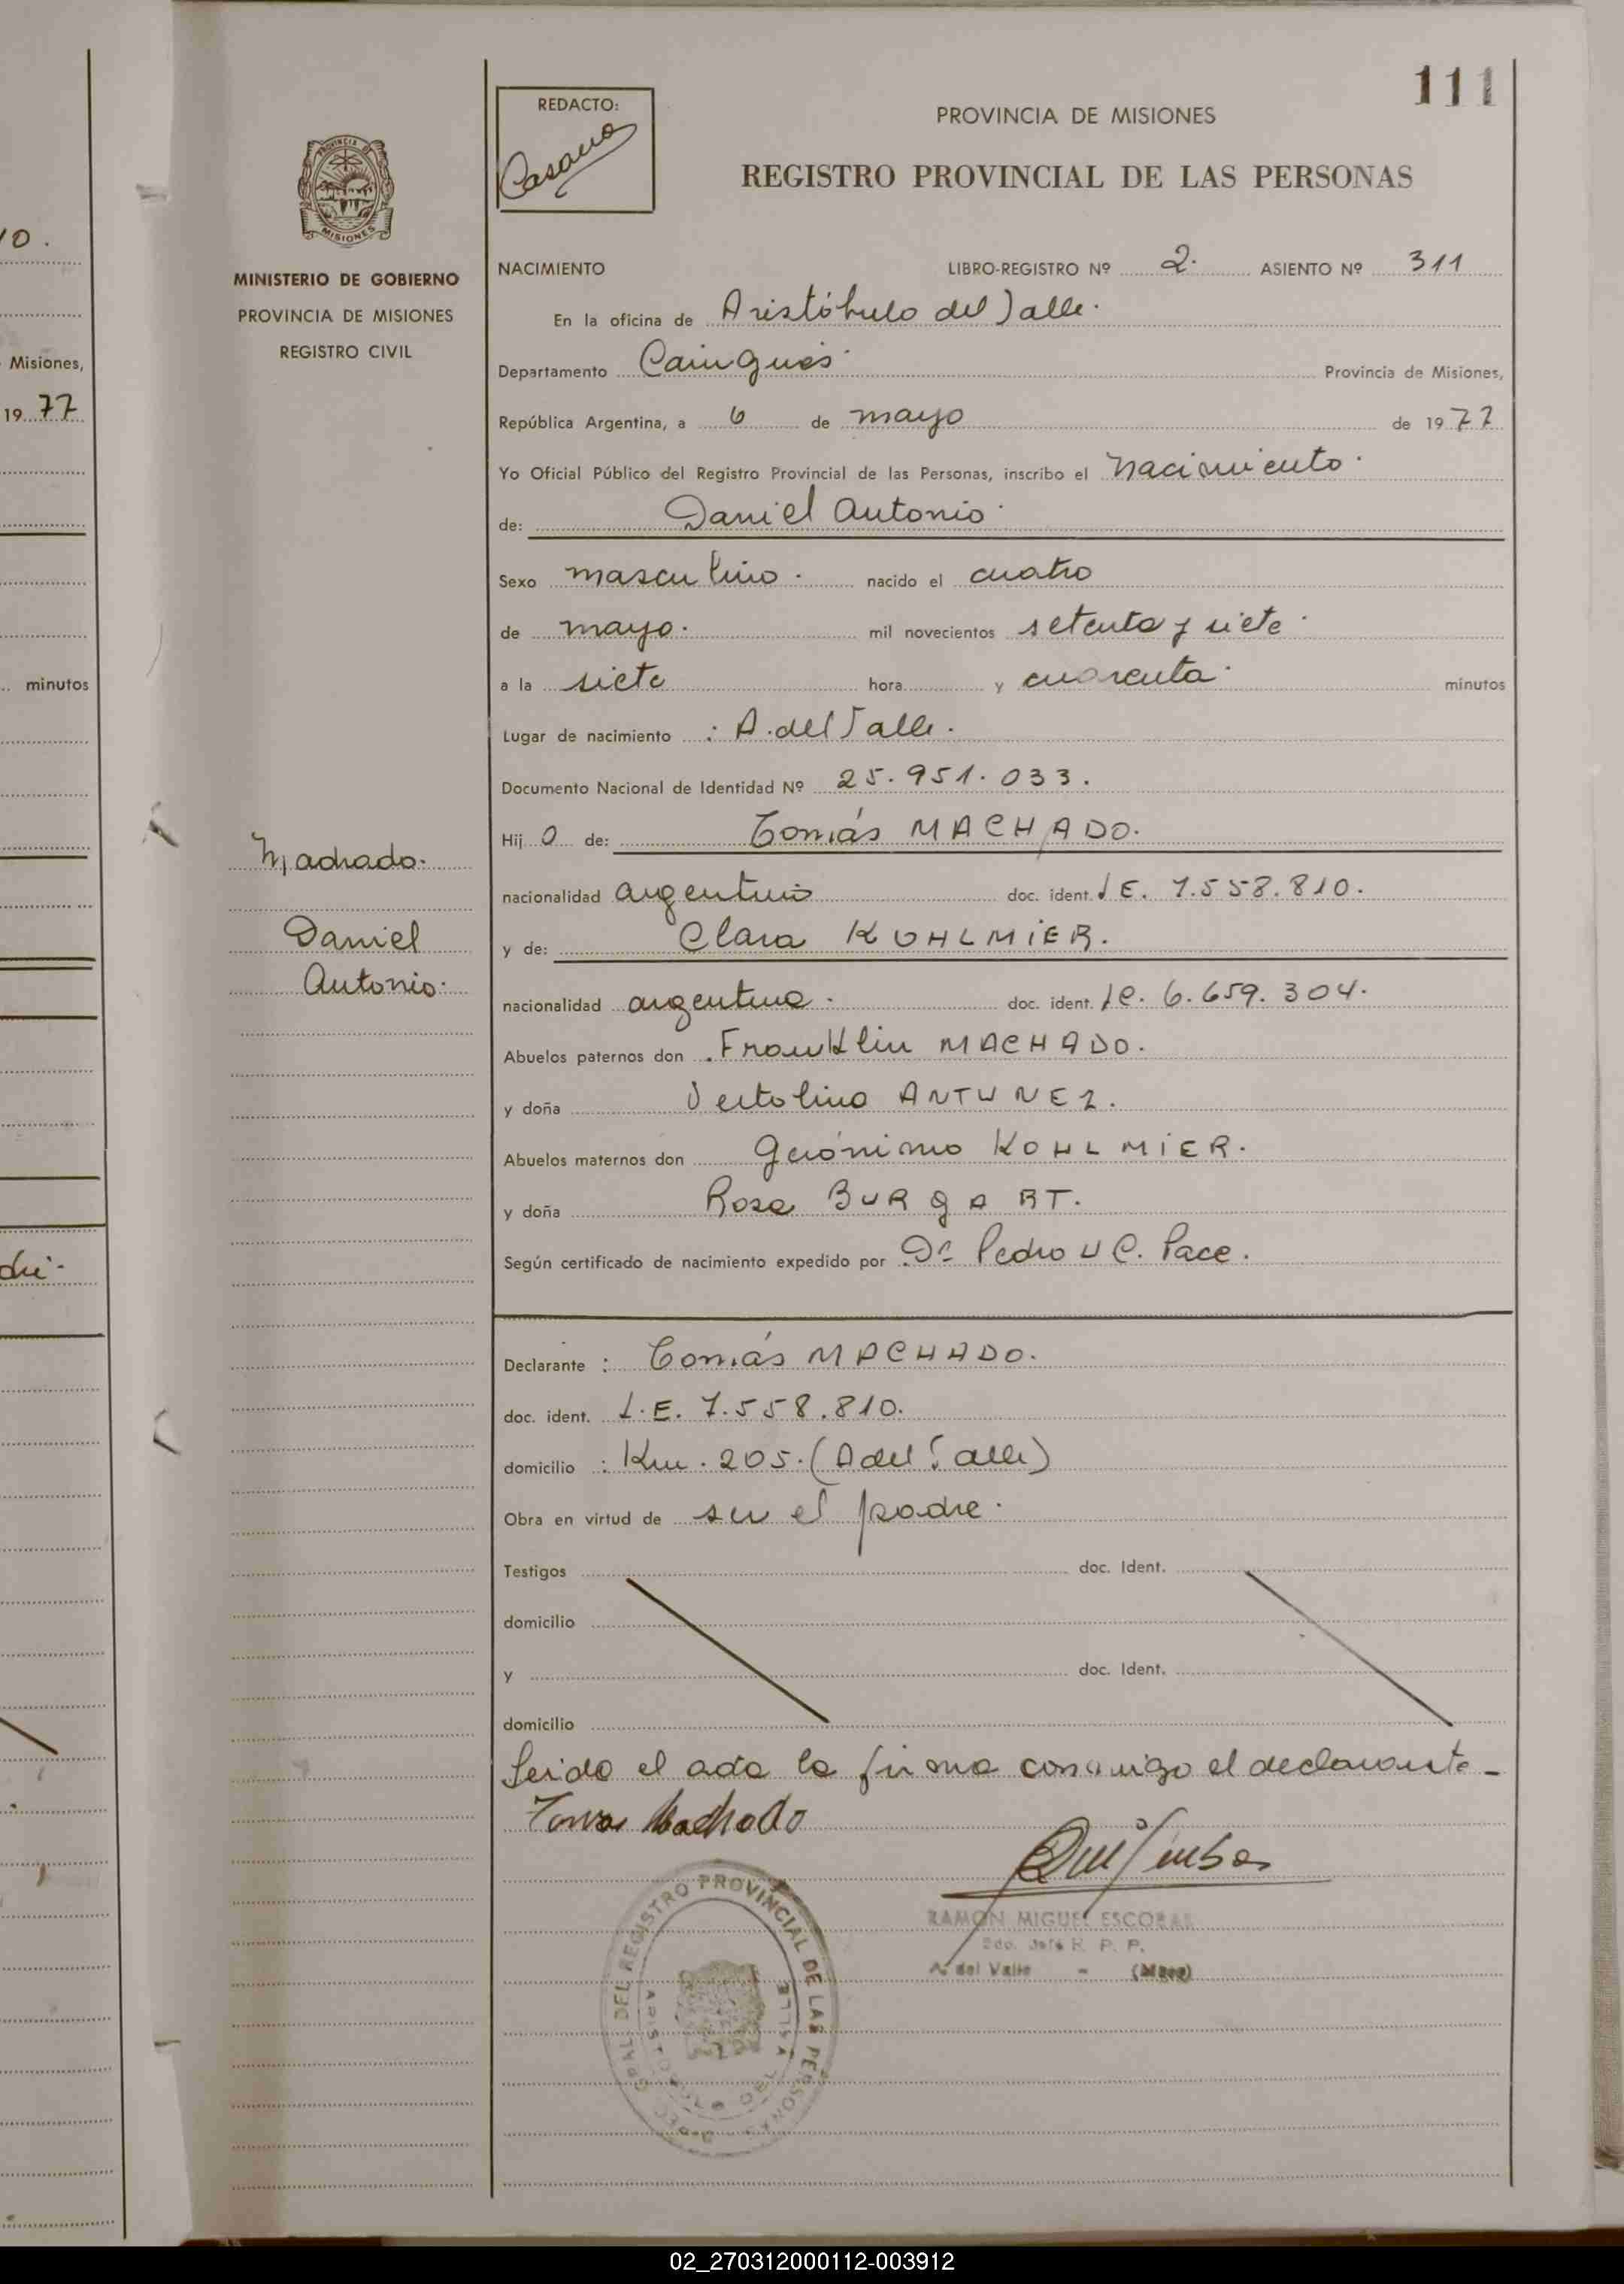 111
REDACTO:
Casano
PROVINCIA DE MISIONES
REGISTRO PROVINCIAL DE LAS PERSONAS
PROVINCIA DE
MISIONES
MINISTERIO DE GOBIERNO
PROVINCIA DE MISIONES
REGISTRO CIVIL
NACIMIENTO LIBRO-REGISTRO Nº 2. ASIENTO Nº 311
En la oficina de Aristóbulo del Valle.
Departamento Cainguás. Provincia de Misiones,
República Argentina, a 6 de mayo de 1977
Yo Oficial Público del Registro Provincial de las Personas, inscribo el nacimiento.
de: Daniel Antonio.
Sexo masculino. nacido el cuatro
de mayo. mil novecientos setenta y siete.
a la siete hora y cuarenta. minutos
Lugar de nacimiento : A. del Valle.
Documento Nacional de Identidad Nº 25.951.033.
Hij o de: Tomás MACHADO.
nacionalidad argentino doc. ident. L E. 7.558.810.
y de: Clara KOHLMIER.
nacionalidad argentina. doc. ident. LC. 6.659.304.
Abuelos paternos don Franklin MACHADO.
y doña ANTUNEZ.
Abuelos maternos don Gerónimo KOHLMIER.
y doña Rosa BURGART.
Según certificado de nacimiento expedido por Dr. Pedro C. Pace.
Machado.
Daniel
Antonio.
Declarante : Tomás MACHADO.
doc. ident. L.E. 7.558.810.
domicilio : Km. 205. (A del Valle)
Obra en virtud de ser el padre.
Testigos doc. Ident.
domicilio
y doc. Ident.
domicilio
Leida el acta la firma conmigo el declarante -
Tomas Machado
RAMON MIGUEL ESCOBAR
2do. Jefe R. P. P.
A. del Valle - (Mnes)
DEL REGISTRO PROVINCIAL DE LAS PERSONAS
ARISTOBULO DEL VALLE
yo.
Misiones,
1977
minutos
dre.
02_270312000112-003912